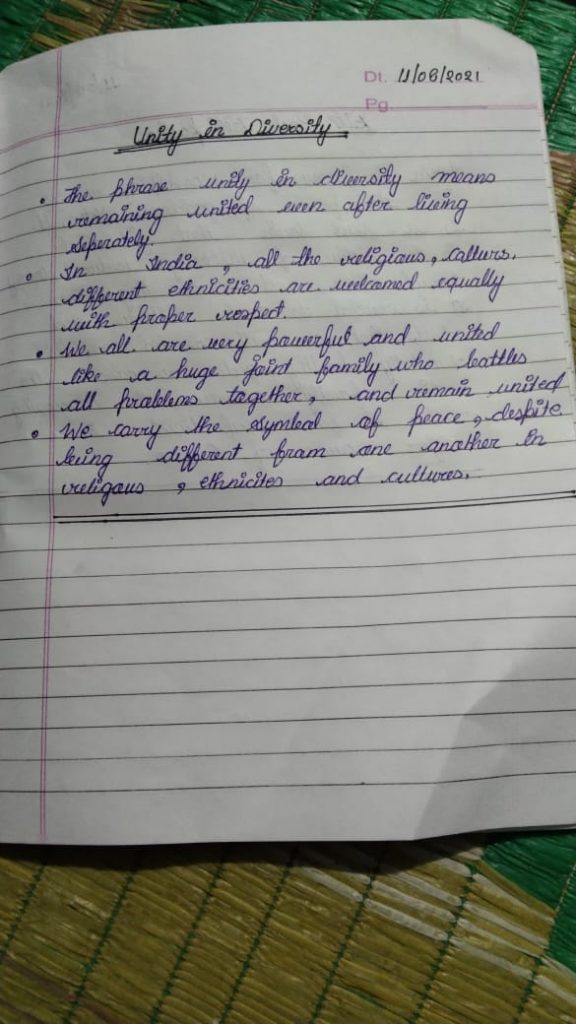 Dt. 11/08/2021
Pg.
Unity in Diversity
• The phrase unity in diversity means
remaining united even after living
seperately.
• In India, all the religious, callurs,
different ethnicities are welcomed equally
with proper respect.
• We all are very powerful and united
like a huge joint family who battles
all problems together, and remain united
• We carry the symbol of peace, despite
being different from one another in
religous, ethnicites and cultures.